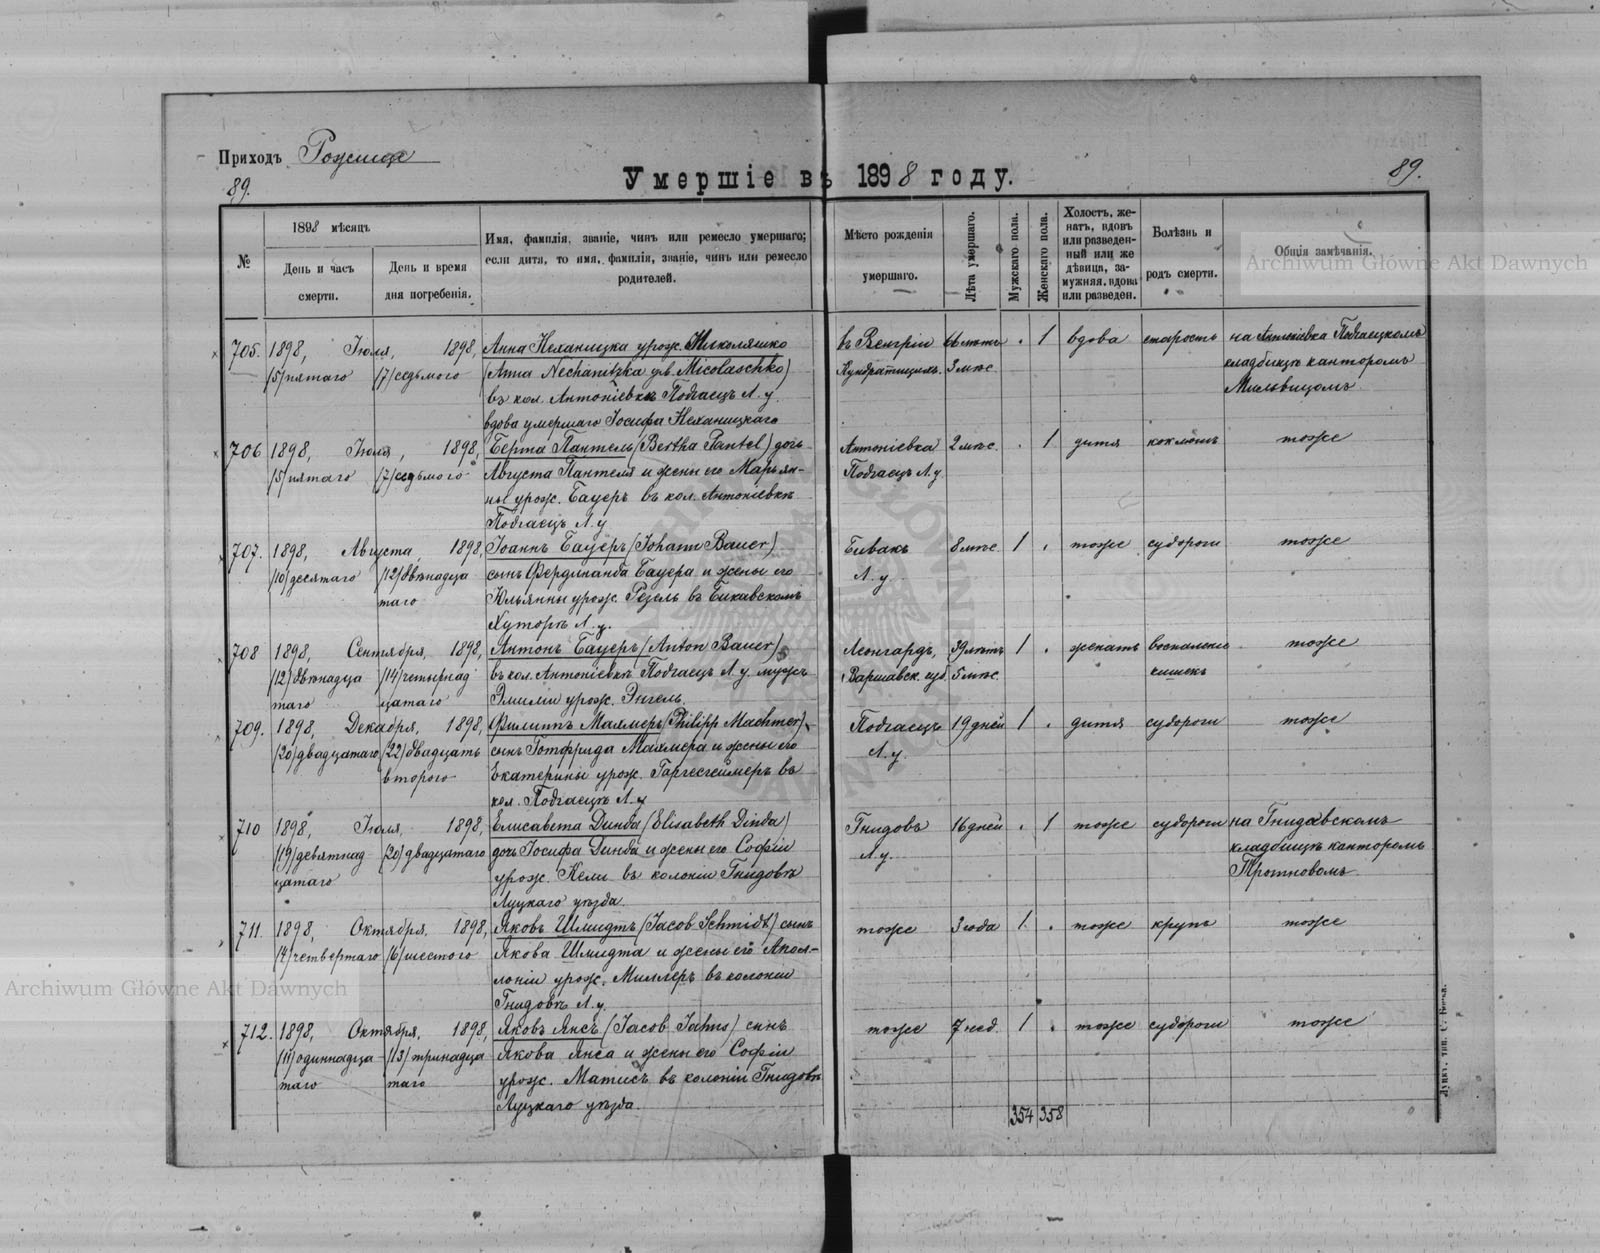 Приходъ Рожище
89.
Умершіе въ 1898 году.
89.
№
1898 мѣсяцъ
День и часъ смерти.
День и время дня погребенія.
Имя, фамилія, званіе, чинъ или ремесло умершаго;
если дитя, то имя, фамилія, званіе, чинъ или ремесло
родителей.
Мѣсто рожденія
умершаго.
Лѣта умершаго.
Мужскаго пола.
Женскаго пола.
Холостъ, же-
натъ, вдовъ
или разведен-
ный или же
дѣвица, за-
мужняя, вдова
или разведен.
Болѣзнь и
родъ смерти.
Общія замѣчанія.
Archiwum Główne Akt Dawnych
705. 1898, Іюля, 1898, Анна Неханицка урож. Николяшко въ Венгріи 66 лѣтъ . 1 вдова старость на Антоніевка Подгаецкомъ
(5) пятаго (7) седьмого (Anna Nechanitzka geb. Micolaschko) 3 мѣс. кладбищѣ канторомъ
въ кол. Антоніевкѣ Подгаецъ Л. у. Мильвицомъ.
вдова умершаго Іосифа Неханицкаго
706 1898, Іюля, 1898, Берта Пантель (Bertha Pantel) дочь Антоніевка 2 мѣс. . 1 дитя коклюшъ тоже
(5) пятаго (7) седьмого Августа Пантеля и жены его Марьян- Подгаецъ Л. у.
ны урож. Бауеръ въ кол. Антоніевкѣ
Подгаецъ Л. у
707. 1898, Августа, 1898, Іоаннъ Бауеръ (Johann Bauer) Бивакъ 8 мѣс. 1 . тоже судороги тоже
(10) десятаго (12) двѣнадца сынъ Фердинанда Бауера и жены его Л. у.
таго Юльянны урож. Резель въ Бикавскомъ
Хуторѣ Л. у.
708 1898, Сентября, 1898, Антонъ Бауеръ (Anton Bauer) Леонгардъ, 39 лѣтъ 1 . женатъ воспаленіе тоже
(12) двѣнадца (14) четырнад въ кол. Антоніевкѣ Подгаецъ Л. у. мужъ Варшавск. губ. 5 мѣс. кишекъ
таго цатаго Эмиліи урож. Энгель.
709. 1898, Декабря, 1898, Филиппъ Махмеръ (Philipp Machmer) Подгаецъ 19 дней 1 . дитя судороги тоже
(20) двадцатаго (22) двадцать сынъ Готфрида Махмера и жены его Л. у.
второго Екатерины урож. Гаргесгеймеръ въ
кол. Подгаецъ Л. у
710 1898, Іюля, 1898, Елисавета Динда (Elisabeth Dinda) Гнидовъ 16 дней . 1 тоже судороги на Гнидавскомъ
(19) девятнад (20) двадцатаго дочь Іосифа Динда и жены его Софіи Л. у. кладбищѣ канторомъ
цатаго урож. Кели въ колоніи Гнидовъ
Луцкаго уѣзда
711. 1898, Октября, 1898, Яковъ Шмидтъ (Jacob Schmidt) сынъ тоже 3 года 1 . тоже крупъ тоже
(4) четвертаго (6) шестого Якова Шмидта и жены его Апол-
лоніи урож. Миллеръ въ колоніи
Гнидовъ Л. у
Archiwum Główne Akt Dawnych
712. 1898, Октября, 1898, Яковъ Янсъ (Jacob Jahns) сынъ тоже 7 нед. 1 . тоже судороги тоже
(11) одиннадца (13) тринадца Якова Янса и жены его Софіи
таго таго урож. Матисъ въ колоніи Гнидовъ
Луцкаго уѣзда.
354 358